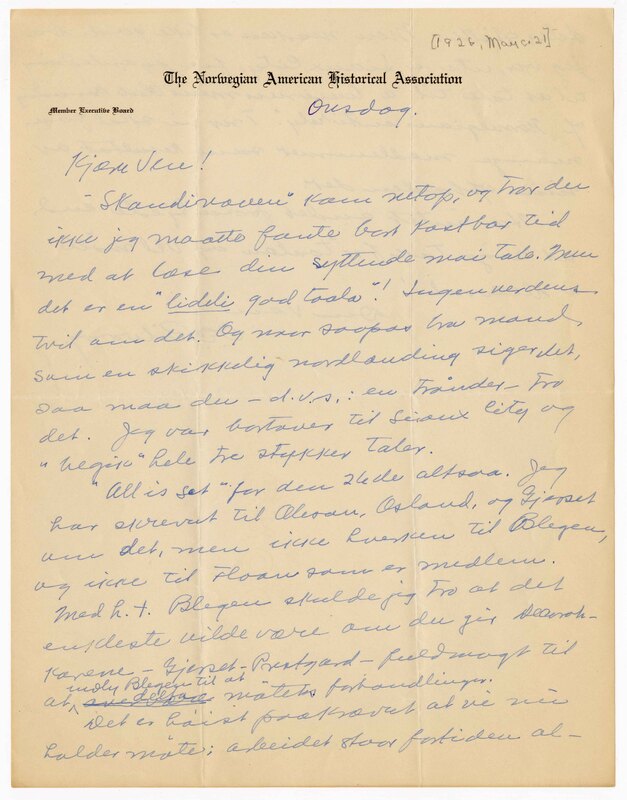 [1926, May c.21]
The Norwegian American Historical Association
Member Executive Board
Onsdag.
Kjære Ven!
"Skandinaven" kom netop, og tror du
ikke jeg maatte fante bort kostbar tid
med at læse din syttende mai tale. Men
det er en "lideli god taala"! Ingen verdens
tvil om det. Og naar saapas bra mand,
som en skikkelig nordlænding siger det,
saa maa du – d.v.s.: en Trønder – tro
det. Jeg var bortover til Sioux City og
"begik" hele tre stykker taler.
"All is set" for den 26de altsaa. Jeg
har skrevet til Oleson, Osland, og Gjerset
om det, men ikke hverken til Blegen,
og ikke til Floan som er medlem.
Med h. t. Blegen skulde jeg tro at det
enkleste vilde være om du gir Decorah-
karene – Gjerset – Prestgard – fuldmagt til
indby Blegen til at
at møtets forhandlinger.
Det er høist paakrævet at vi nu
holder møte; arbeidet staar fortiden al–